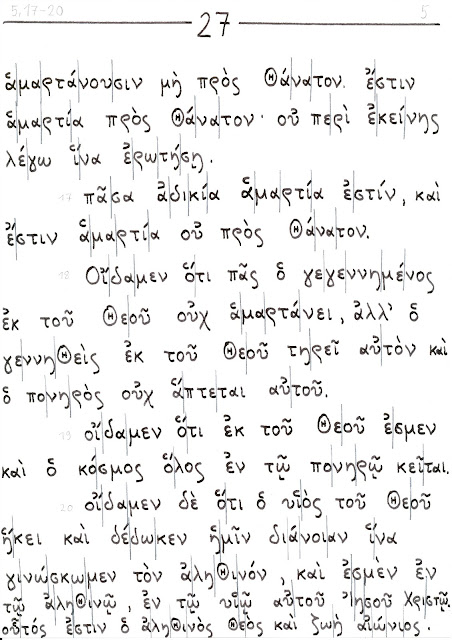 5,17-20 27 5
ἁμαρτάνουσιν μὴ πρὸς θάνατον. ἔστιν
ἁμαρτία πρὸς θάνατον· οὐ περὶ ἐκείνης
λέγω ἵνα ἐρωτήσῃ.
17 πᾶσα ἀδικία ἁμαρτία ἐστίν, καὶ
ἔστιν ἁμαρτία οὐ πρὸς θάνατον.
18 Οἴδαμεν ὅτι πᾶς ὁ γεγεννημένος
ἐκ τοῦ θεοῦ οὐχ ἁμαρτάνει, ἀλλ' ὁ
γεννηθεὶς ἐκ τοῦ θεοῦ τηρεῖ αὐτὸν καὶ
ὁ πονηρὸς οὐχ ἅπτεται αὐτοῦ.
19 οἴδαμεν ὅτι ἐκ τοῦ θεοῦ ἐσμεν
καὶ ὁ κόσμος ὅλος ἐν τῷ πονηρῷ κεῖται.
20 οἴδαμεν δὲ ὅτι ὁ υἱὸς τοῦ θεοῦ
ἥκει καὶ δέδωκεν ἡμῖν διάνοιαν ἵνα
γινώσκωμεν τὸν ἀληθινόν, καὶ ἐσμὲν ἐν
τῷ ἀληθινῷ, ἐν τῷ υἱῷ αὐτοῦ Ἰησοῦ Χριστῷ.
οὗτός ἐστιν ὁ ἀληθινὸς θεὸς καὶ ζωὴ αἰώνιος.